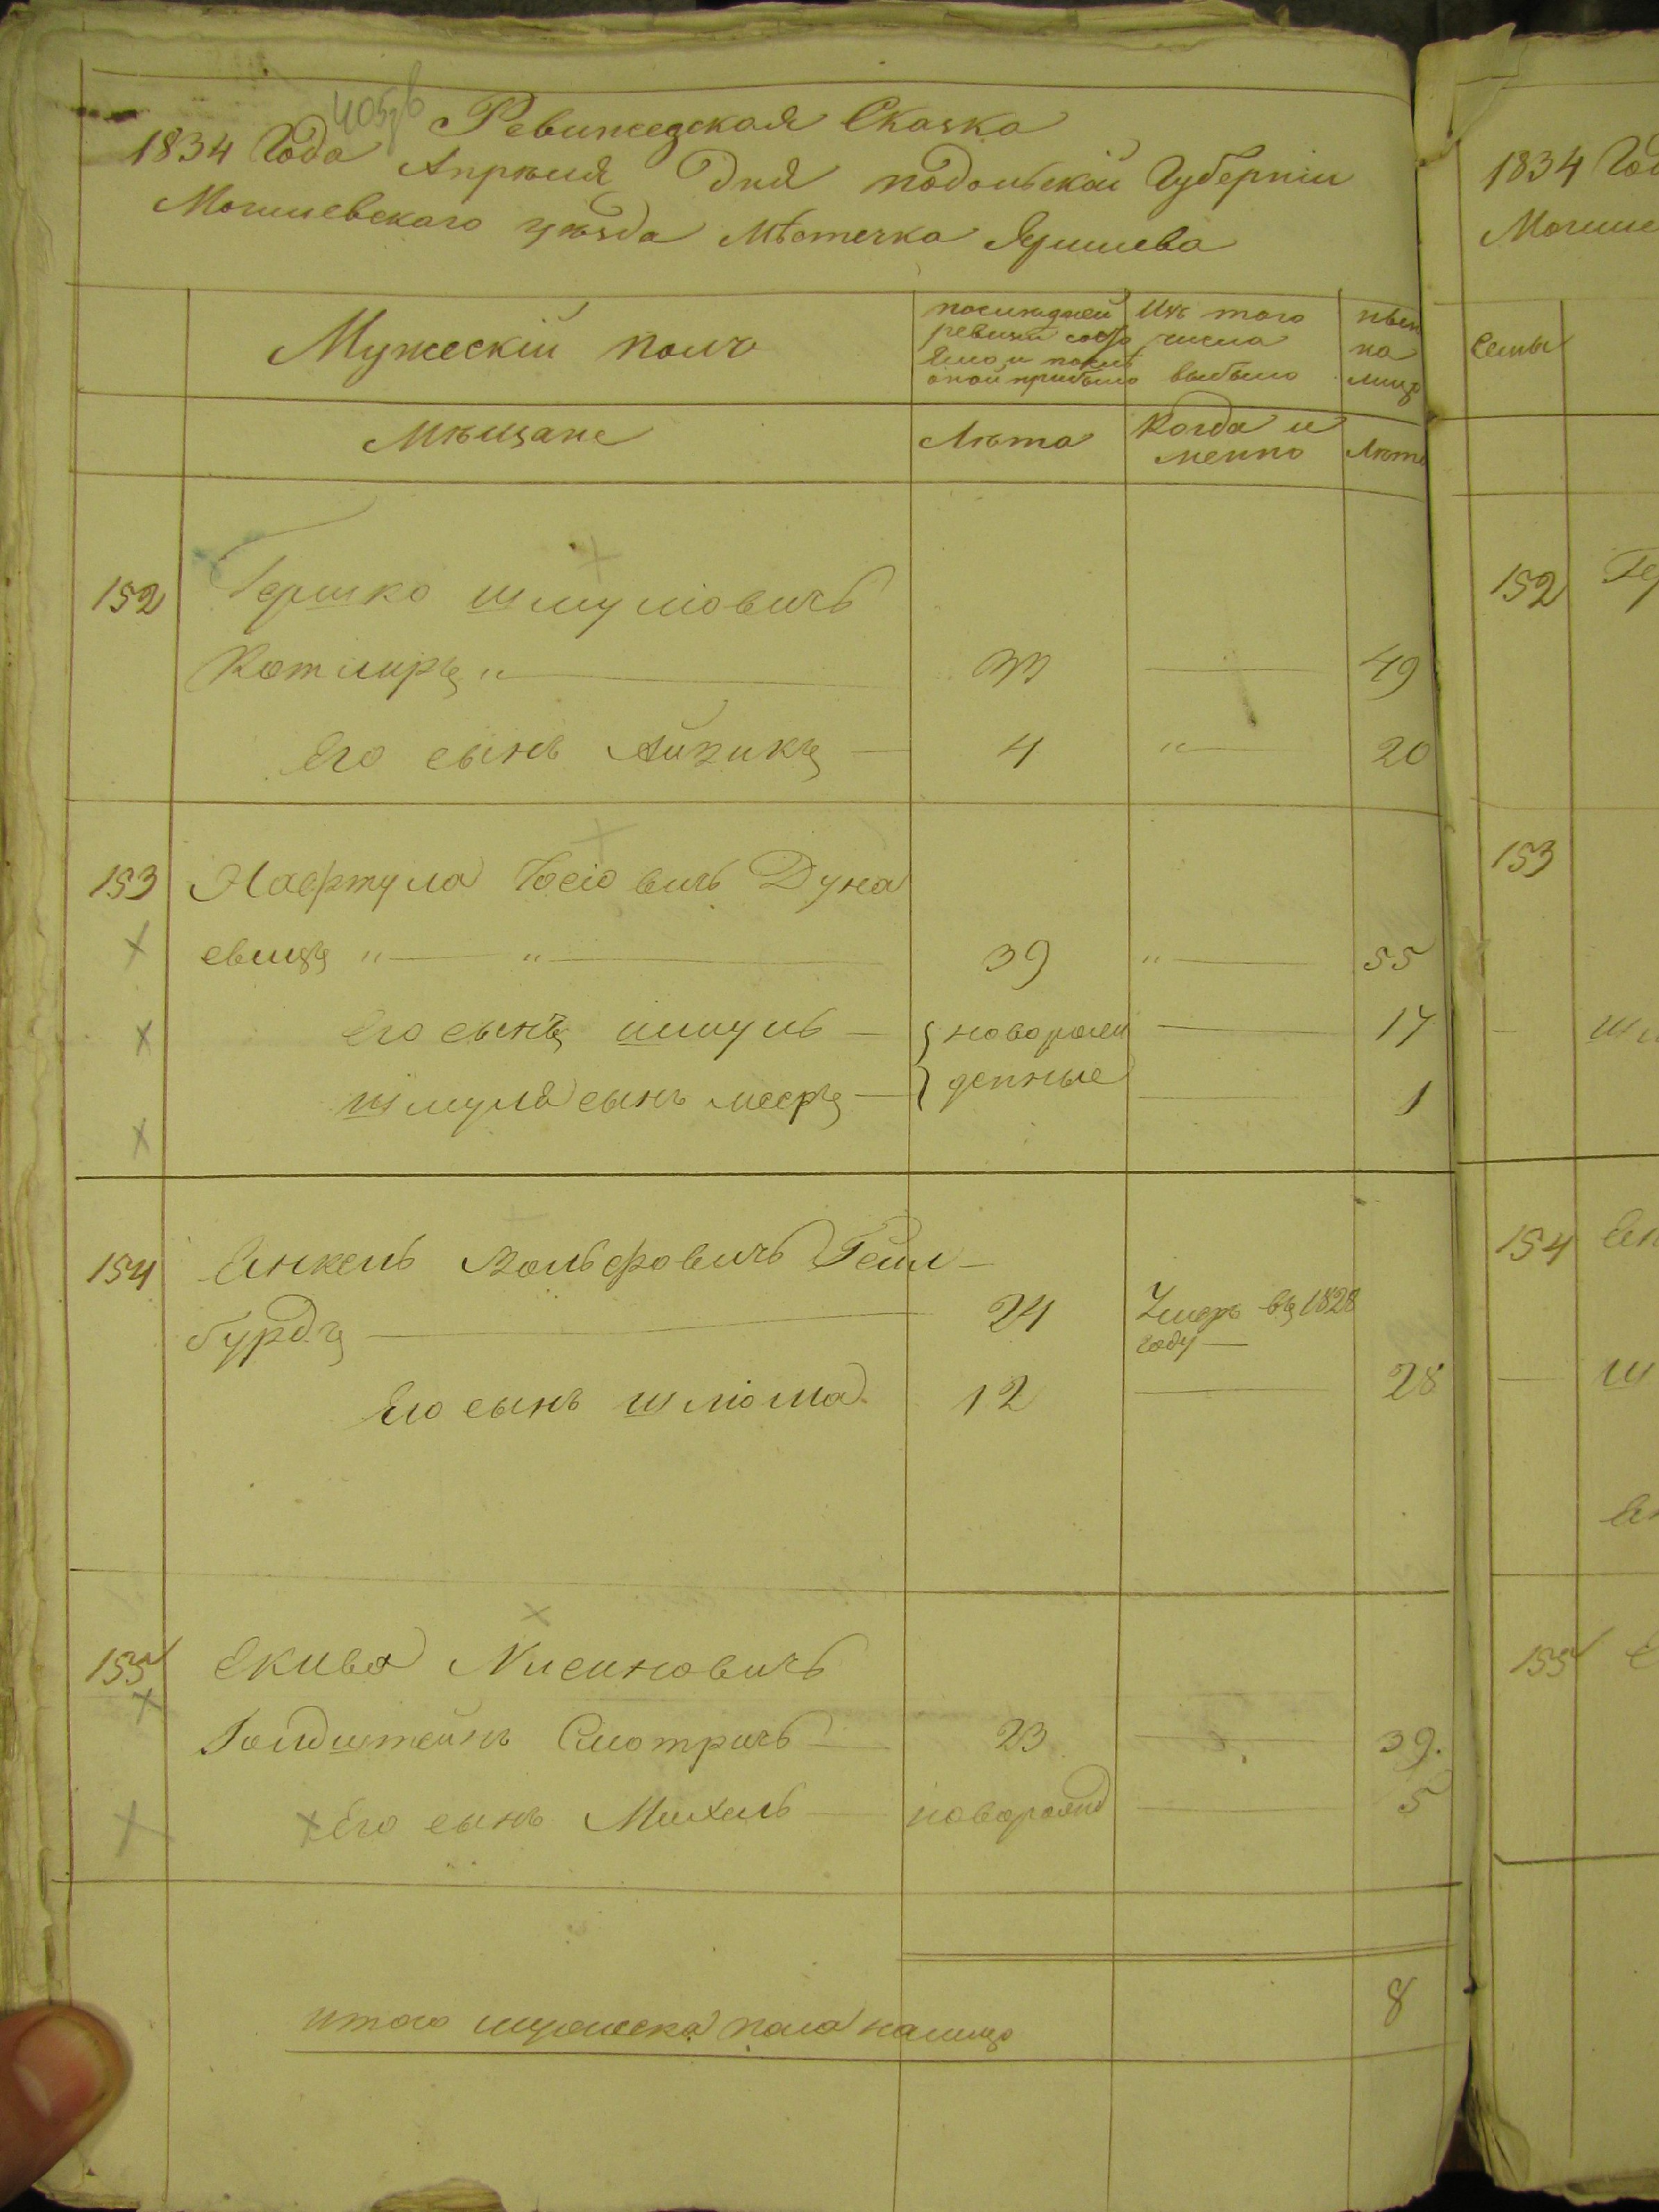 Ревижедская Сказка
1834 Года Апрѣля дня подольской Губерніи
Могилевскаго уѣзда Мѣстечка Яришева
Мужескій полъ
последней ревизіи состо яло и послѣ оной прибыло
Изъ того числа выбыло
нын на лицо
Мѣщане
Лѣта
Когда и менно
Лѣта
152 Гершко шмуліовичъ
Котляръ " 33 49
Его сынъ Айзикъ 4 " 20
153 Нафтула Іосіовичъ Дуна
евицъ " " 39 " 55
Его сынъ шмуль новорож 17
шмуля сынъ мееръ денные 1
154 Янкель Вольфовичъ Гель-
бурдъ 24 Умеръ въ 1828 году
Его сынъ шліома 12 28
155 Екива Нисиновичъ
Голдштейнъ Смотричъ 23 39.
Его сынъ Михель новорожд 5
8
итого мужеска пола налицо
1834 Год
Могиле
Семьи
152 Ге
153
ш
154 Ян
ш
Ян
155 Е